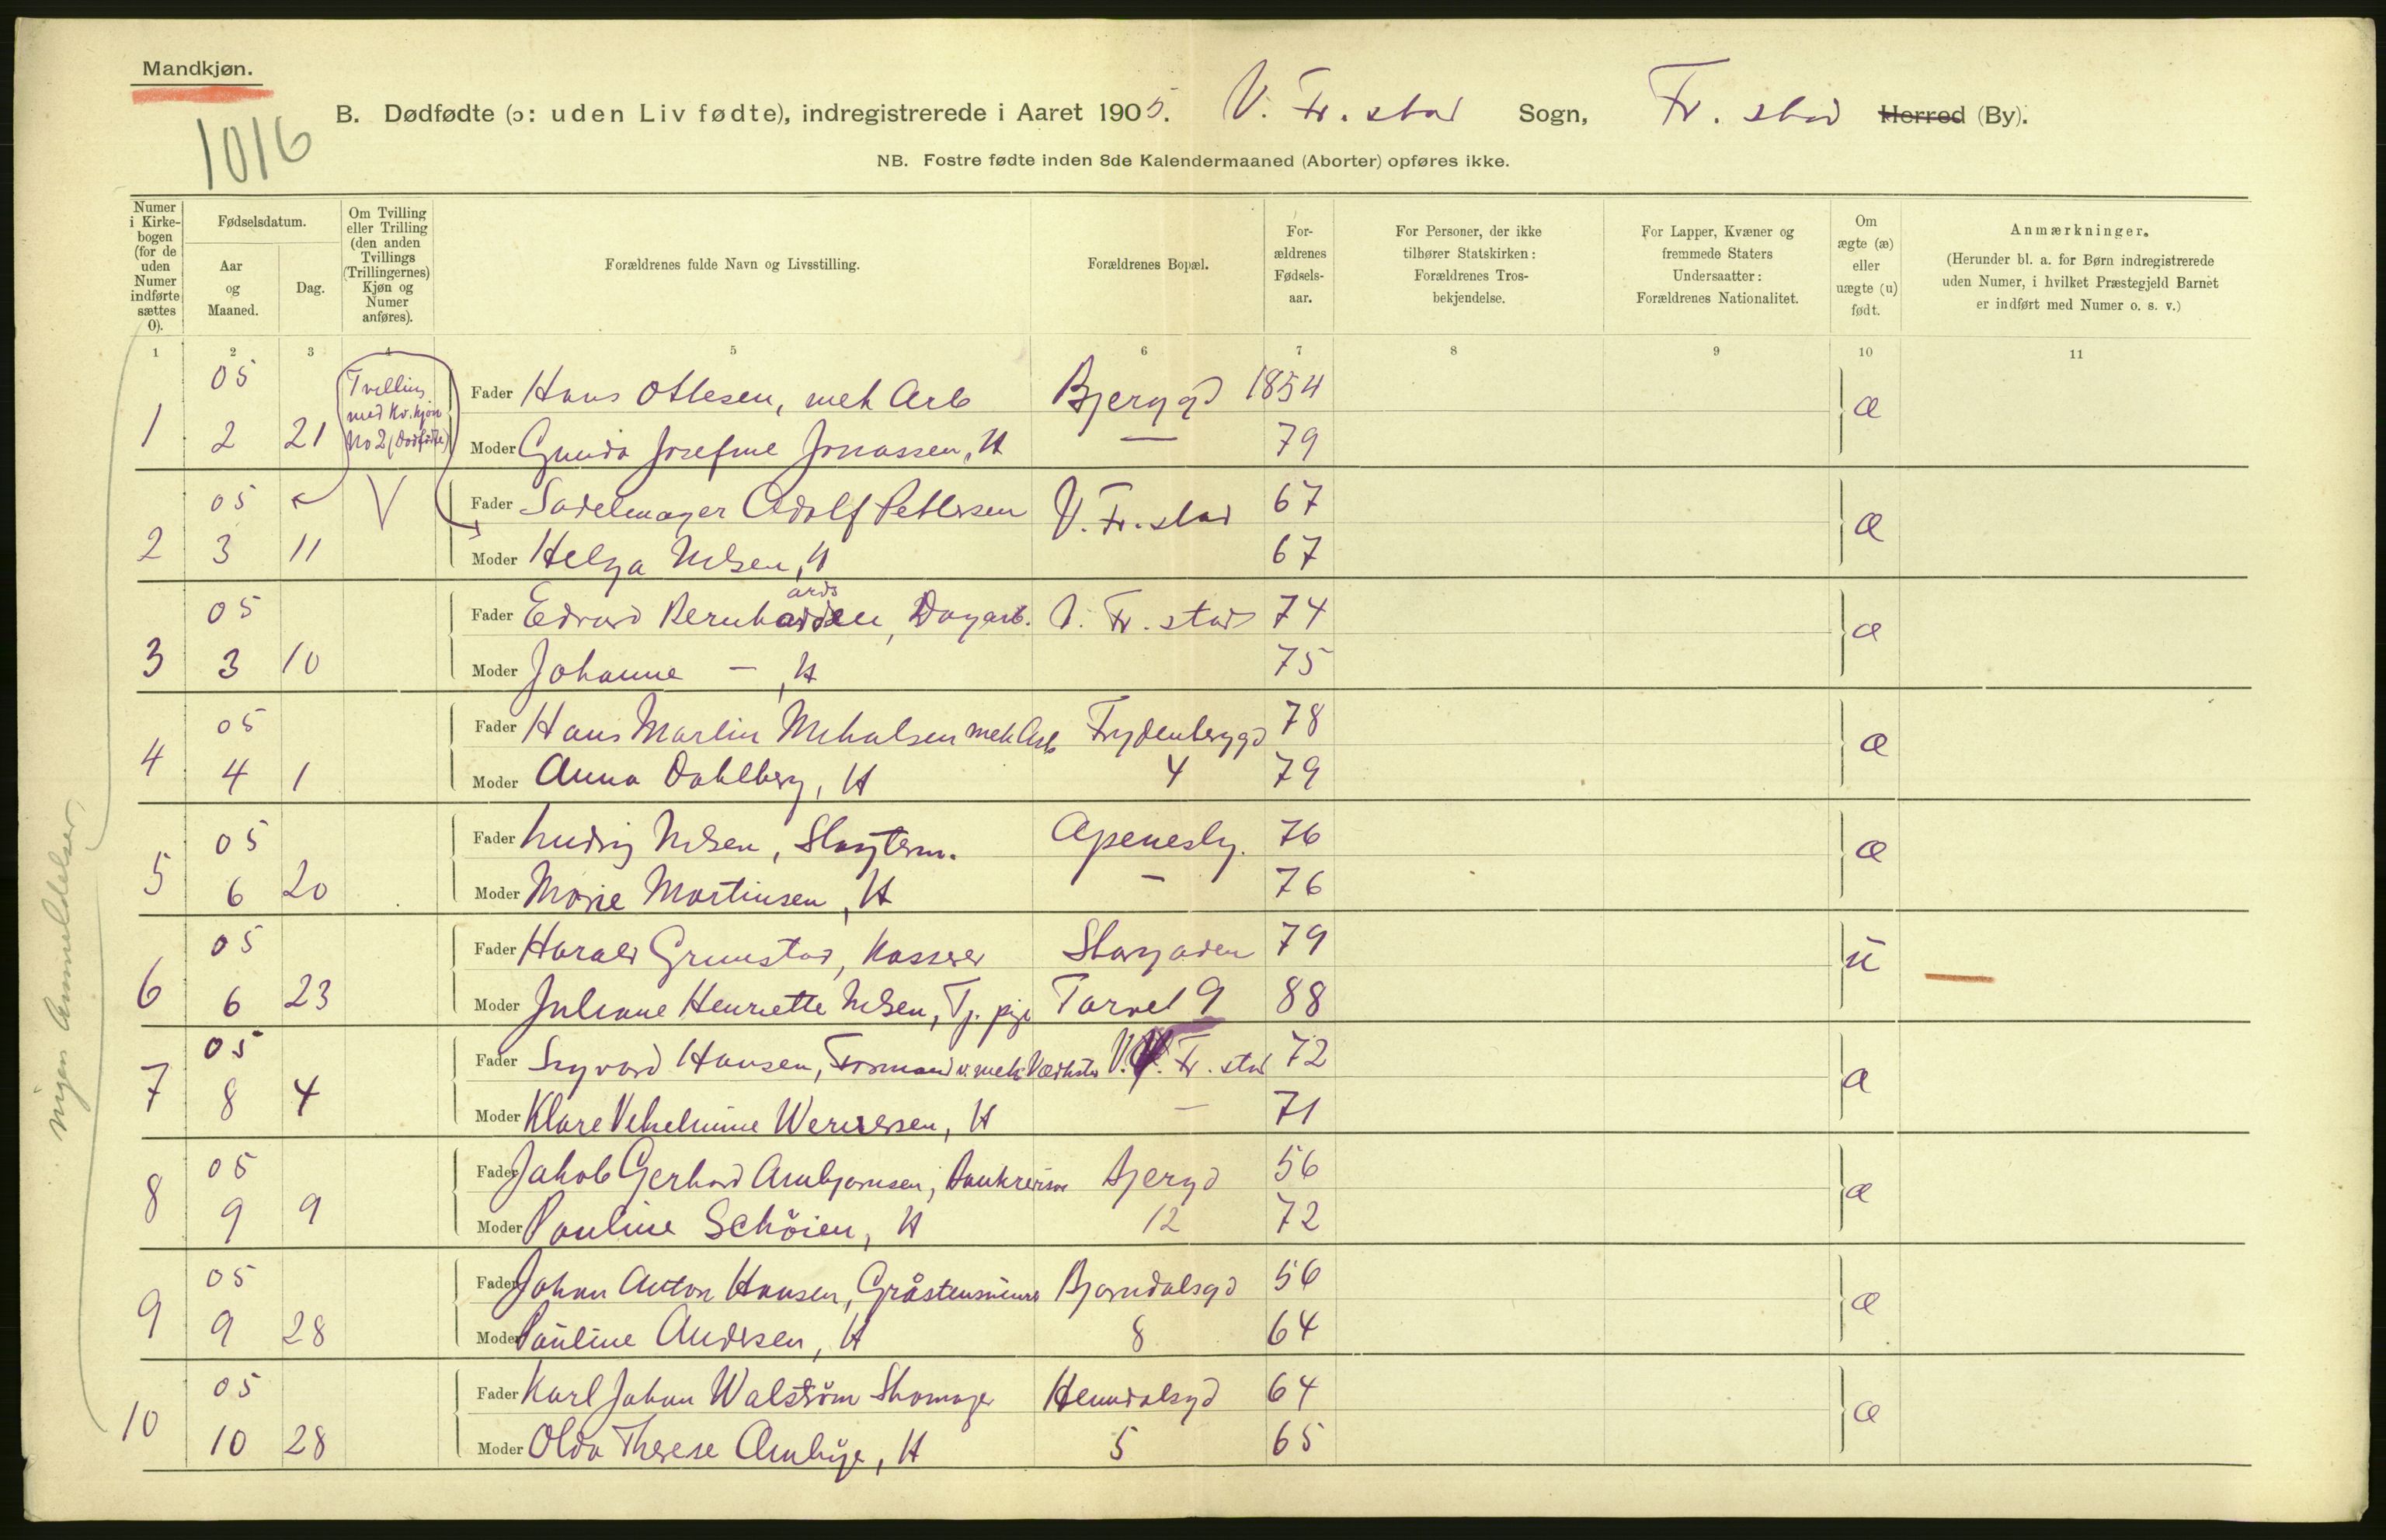 Mandkjøn.
B. Dødfødte (ɔ: uden Liv fødte), indregistrerede i Aaret 1905. V. Fr. stad Sogn, Fr. stad Herred (By).
1016
NB. Fostre fødte inden 8de Kalendermaaned (Aborter) opføres ikke.
Numer i Kirkebogen (for de uden Numer indførte sættes 0).
Fødselsdatum.
Aar og Maaned.
Dag.
Om Tvilling eller Trilling (den anden Tvillings (Trillingernes) Kjøn og Numer anføres).
Forældrenes fulde Navn og Livsstilling.
Forældrenes Bopæl.
For-ældrenes Fødsels-aar.
For Personer, der ikke tilhører Statskirken: Forældrenes Tros-bekjendelse.
For Lapper, Kvæner og fremmede Staters Undersaatter: Forældrenes Nationalitet.
Om ægte (æ) eller uægte (u) født.
Anmærkninger.
(Herunder bl. a. for Børn indregistrerede uden Numer, i hvilket Præstegjeld Barnet er indført med Numer o. s. v.)
1 2 3 4 5 6 7 8 9 10 11
05 Tvilling med Kv. kjøn No 2 (Dødfødte) Fader Hans Ottesen, mek Arb Bjerggd 1854 æ
1 2 21 Moder Gunda Josefine Jonassen, H — 79
05 V Fader Sadelmager Adolf Pettersen V. Fr. stad 67 æ
2 3 11 Moder Helga Nilsen, H 67
05 Fader Edvard Bernhardsen, Dagarb. V. Fr. stad 74 æ
3 3 10 Moder Johanne — , H 75
05 Fader Hans Martin Mikalsen mek Arb Frydenberggd 78 æ
4 4 1 Moder Anna Dahlberg, H 4 79
05 Fader Ludvig Nilsen, Slagterm. Apenesby. 76 æ
5 6 20 Moder Marie Martinsen, H — 76
05 Fader Harald Grimstad, Kasserer Storgaden 79 u
6 6 23 Moder Juliane Henriette Nilsen, Tj. pige Torvet 9 88
05 Fader Sigvard Hansen, Formand v. mek Værksted V. Fr. stad 72 æ
7 8 4 Moder Klare Vilhelmine Wernersen, H — 71
05 Fader Jakob Gerhard Arnbjørnsen, Bjergd 56 æ
8 9 9 Moder Pauline Schöien, H 12 72
05 Fader Johan Anton Hansen, Gråstensminer Bjørndalsgd 56 æ
9 9 28 Moder Pauline Andersen, H 8 64
05 Fader Karl Johan Walström Skomager 64 æ
10 10 28 Moder Olda Therese H 5 65
ingen Anmeldelser